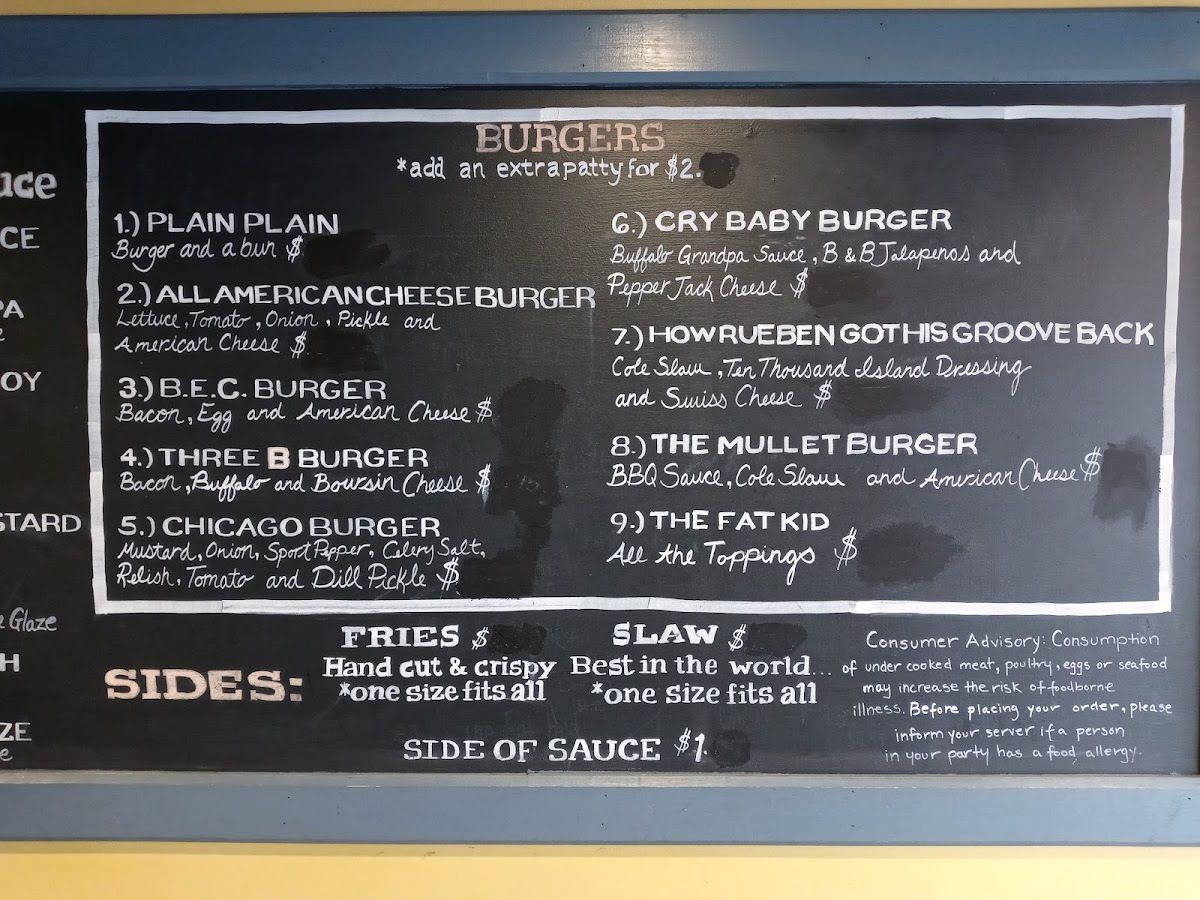 uce
CE
PA
e
OY
STARD
e Glaze
H
ZE
e
BURGERS
*add an extra patty for $2.
1.) PLAIN PLAIN
Burger and a bun $
2.) ALL AMERICAN CHEESE BURGER
Lettuce, Tomato, Onion, Pickle and
American Cheese $
3.) B.E.C. BURGER
Bacon, Egg and American Cheese $
4.) THREE B BURGER
Bacon, Buffalo and Boursin Cheese $
5.) CHICAGO BURGER
Mustard, Onion, Sport Pepper, Celery Salt,
Relish, Tomato and Dill Pickle $
6.) CRY BABY BURGER
Buffalo Grandpa Sauce, B & B Jalapenos and
Pepper Jack Cheese $
7.) HOW RUEBEN GOT HIS GROOVE BACK
Cole Slaw, Ten Thousand Island Dressing
and Swiss Cheese $
8.) THE MULLET BURGER
BBQ Sauce, Cole Slaw and American Cheese $
9.) THE FAT KID
All the Toppings $
SIDES:
FRIES $
Hand cut & crispy
*one size fits all
SLAW $
Best in the world...
*one size fits all
SIDE OF SAUCE $1.
Consumer Advisory: Consumption
of under cooked meat, poultry, eggs or seafood
may increase the risk of foodborne
illness. Before placing your order, please
inform your server if a person
in your party has a food allergy.